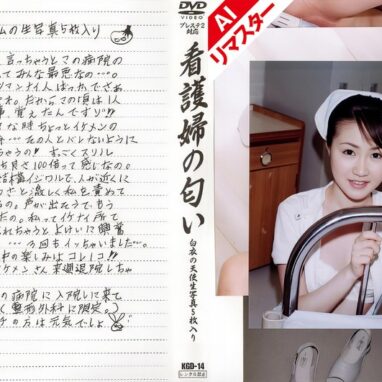 ムの生写真5枚入り
言っちゃうとこの病院の
てみんな最悪なの…。
リマン人ばっかでさぁ
ね。だからこの頃は1人
事、覚えたんです!!
な時ちょっとイケメンの
その人とバレないように
ちゃうの!!すごくスリル
も良さ100倍って感じなの。
結構イジワルで、人が近くに
わざと激しく私を責めて
るの。声が出そうで、もう
だの。私ってイケナイ所で
れちゃうとよけいに興奮
3回もイッちゃいました…。
中の楽しみはコレ!コレ!!
イケメンさん来週退院しちゃ
の病院に入院しに来て
整形外科に限定。)
チの方は元気でしょ
DVD
VIDEO
プレステ2
対応
看護婦の匂い
白衣の天使生写真5枚入り
KGD-14
レンタル禁止
AI
リマスター